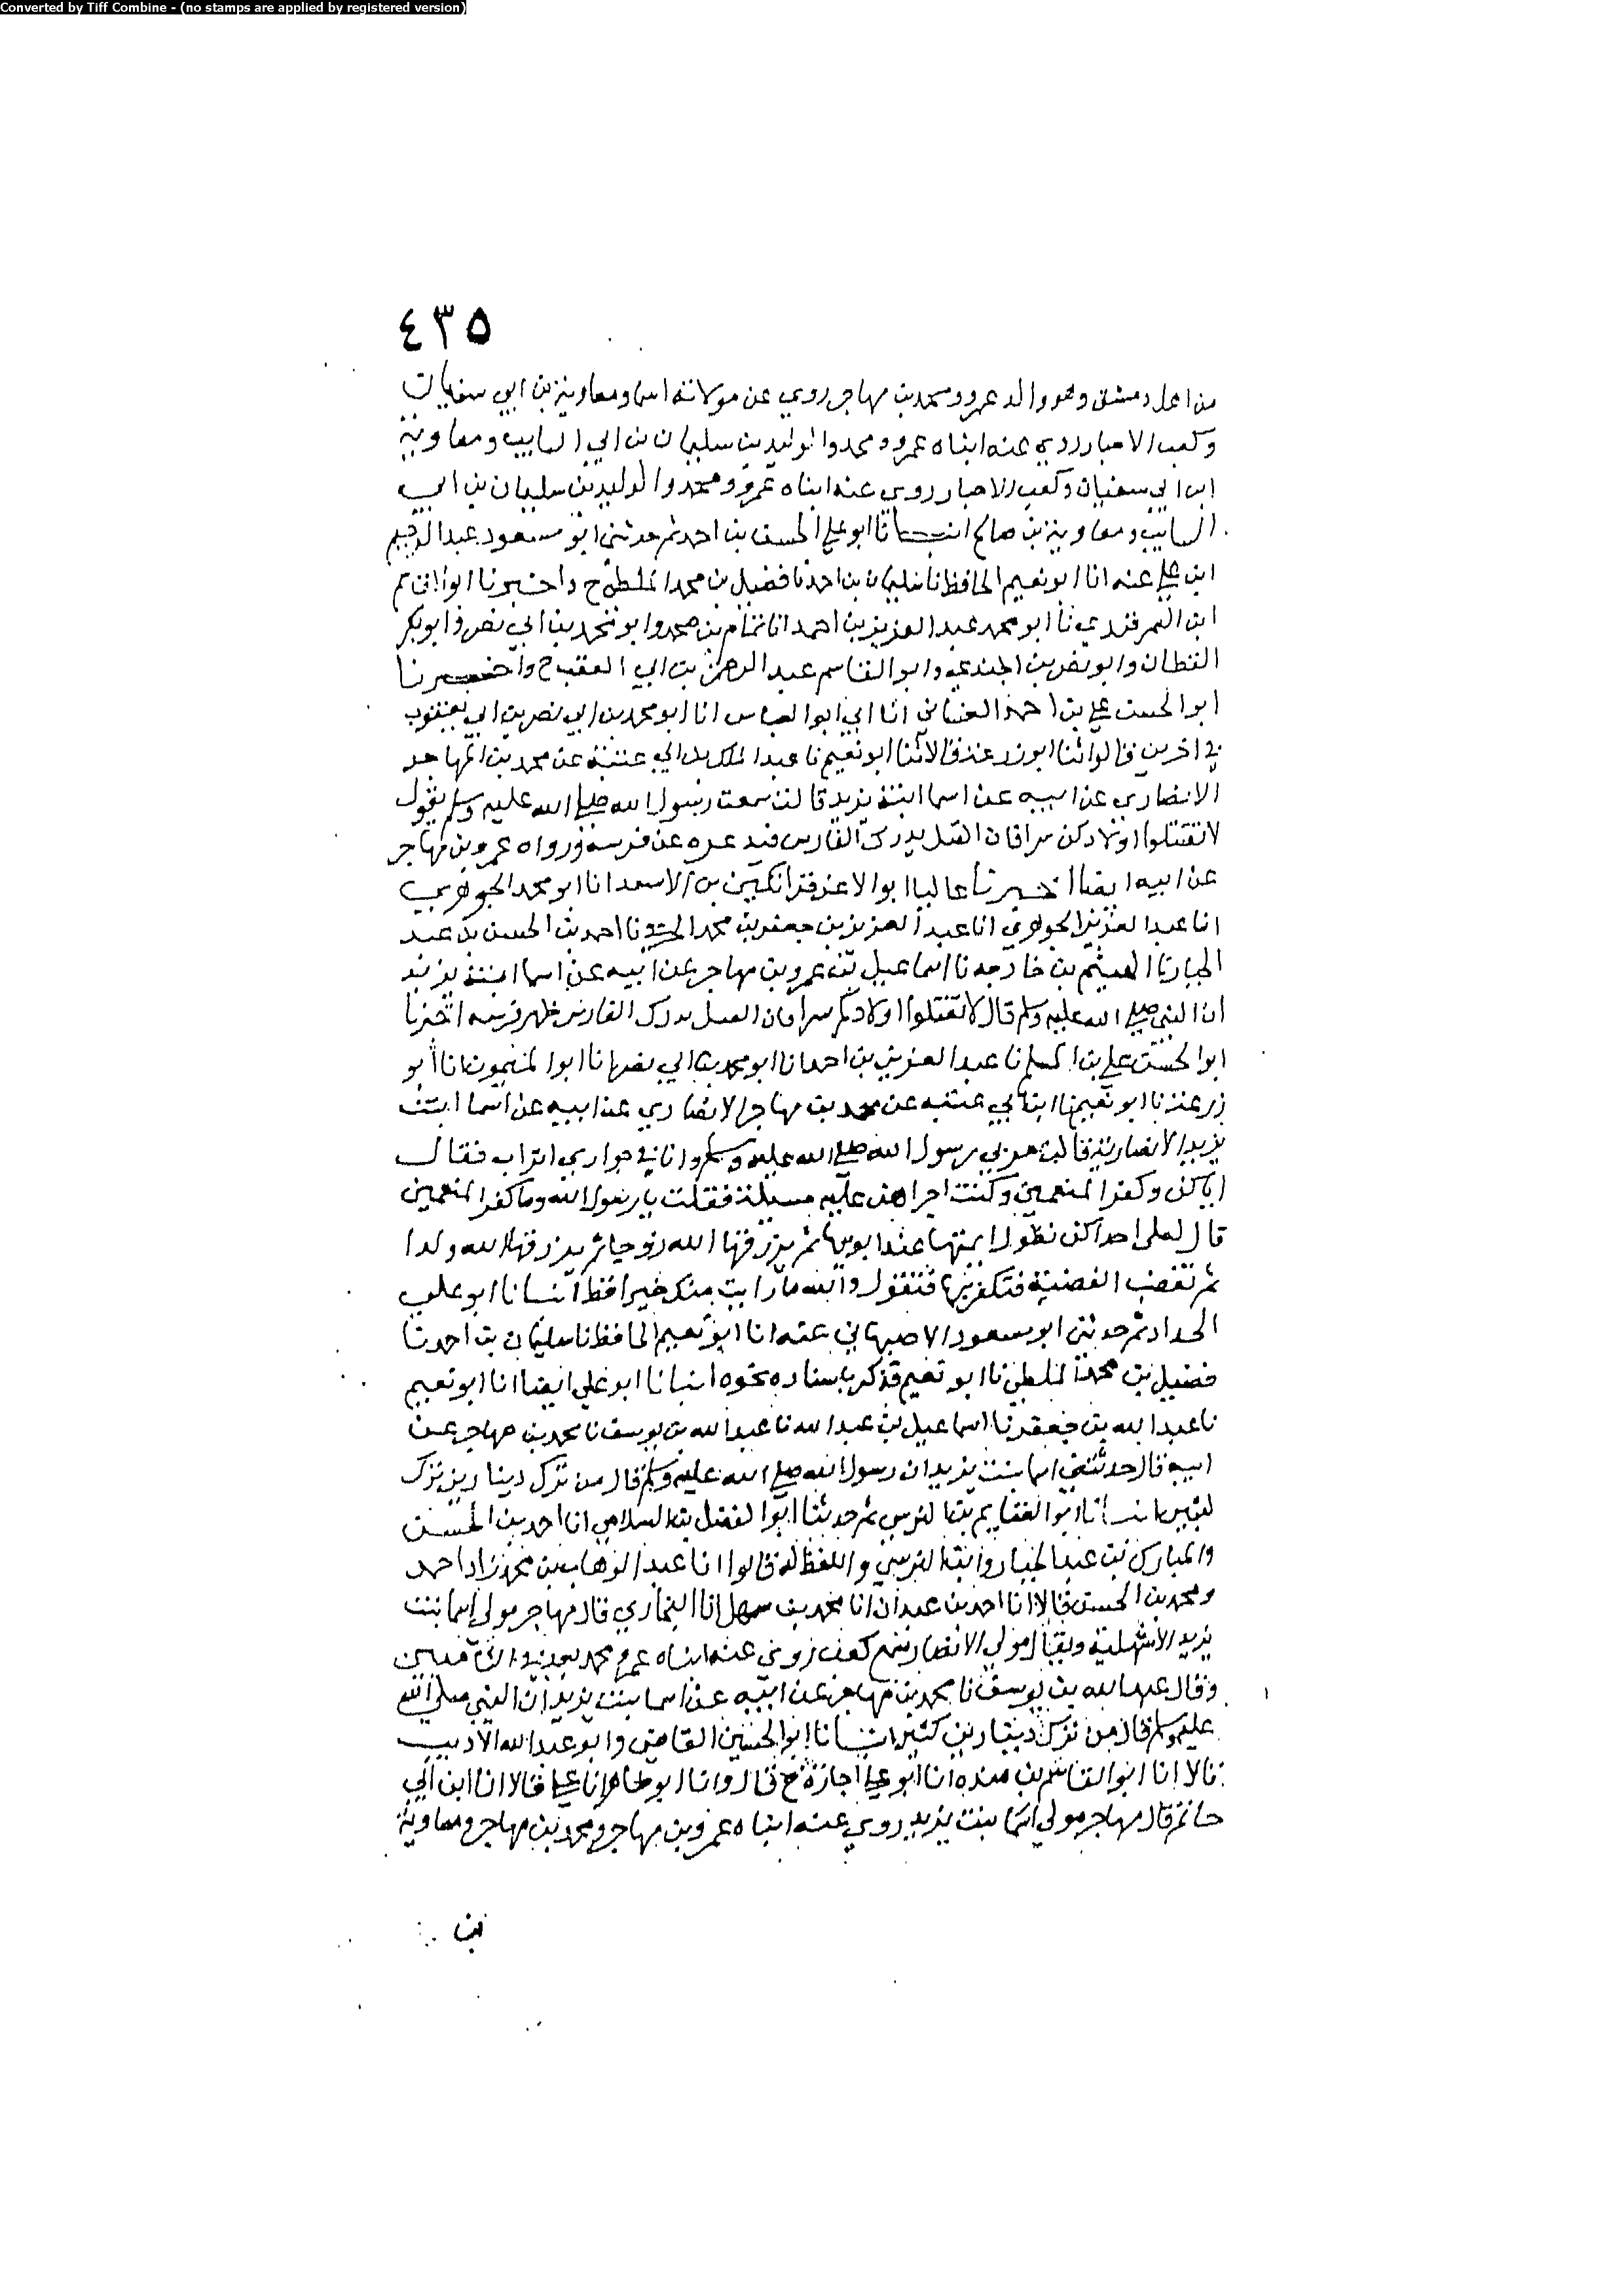 Converted by Tiff Combine - (no stamps are applied by registered version)
٤٣٥
من اهل دمشق وهو والد عمرو ومحمد بن مهاجر روي عن مولاته اسما ومعاوية بن ابي سفيان
وكعب الاحبار روي عنه ابناه عمرو ومحمد والوليد بن سليمان بن ابي السايب ومعاوية
ابن ابي سفيان وكعب الاحبار روي عنه ابناه عمرو ومحمد والوليد بن سليمان بن ابي
السايب ومعاوية بن صالح انبانا ابو علي الحسن بن احمد ثم حدثني ابو مسعود عبد الرحيم
ابن علي عنه انا ابو نعيم الحافظ نا سليمان بن احمد نا فضيل بن محمد الملطي ح واخبرنا ابو القاسم
ابن السمرقندي نا ابو محمد عبد العزيز بن احمد انا تمام بن محمد وابو محمد بن ابي نصر وابو بكر
القطان وابو نصر بن الجندي وابو القاسم عبد الرحمن بن ابي العقب ح واخبرنا
ابو الحسن علي بن احمد الغساني انا ابي ابو العباس انا ابو محمد بن ابي نصر بن ابي يعقوب
في اخرين قالوا انا ابو زرعة قالا نا ابو نعيم نا عبد الملك بن ابي عتبة عن محمد بن المهاجر
الانصاري عن ابيه عن اسما ابنة يزيد قالت سمعت رسول الله صلي الله عليه وسلم يقول
لا تقتلوا اولادكن سرا فان القيل يدرك الفارس فيدعره عن فرسه ورواه عمرو بن مهاجر
عن ابيه ايضا اخبرنا عاليا ابو الاعز قراتكين بن الاسعد انا ابو محمد الجوهري
انا عبد العزيز الجوهري انا عبد العزيز بن جعفر بن محمد نا احمد بن الحسن بن عبد
الجبار نا الهيثم بن خارجه نا اسماعيل عن عمرو بن مهاجر عن ابيه عن اسما ابنة يزيد
ان النبي صلي الله عليه وسلم قال لا تقتلوا اولادكم سرا فان الغيل يدرك الفارس ظهر فرسه اخبرنا
ابو الحسن علي بن المسلم نا عبد العزيز بن احمد انا ابو محمد بن ابي نصر انا ابو الميمون انا ابو
زرعة نا ابو نعيم نا ابن ابي عتبه عن محمد بن مهاجر الانصاري عن ابيه عن اسما ابنت
يزيد الانصارية قالت مر بي رسول الله صلي الله عليه وسلم وانا في جواري اتراب فقال
اياكن وكفر المنعمين وكنت اجراهن عليه مسيلة فقلت يا رسول الله وما كفر المنعمين
قال لعلي احداكن تطول ايمتها عند ابويها ثم يرزقها الله زوجا ثم يرزقها الله ولدا
ثم تغضب الغضبة فتكفر بها فتقول والله ما رايت منك خيرا قط انبانا ابو علي
الحداد ثم حدثني ابو مسعود الاصبهاني عنه انا ابو نعيم الحافظ نا سليمان بن احمد نا
فضيل بن محمد الملطي نا ابو نعيم فذكر باسناده نحوه انبانا ابو علي ايضا انا ابو نعيم
نا عبد الله بن جعفر نا اسماعيل بن عبد الله نا عبد الله بن يوسف نا محمد بن مهاجر عن
ابيه قال حدثتني اسما بنت يزيد ان رسول الله صلي الله عليه وسلم قال من ترك دينارين ترك
كيتين انبانا ابو الغنايم بن النرسي ثم حدثنا ابو الفضل بن السلامي انا احمد بن الحسن
والمبارك بن عبد الجبار وابن النرسي واللفظ له قالوا انا عبد الوهاب بن محمد زاد احمد
ومحمد بن الحسن قالا انا احمد بن عبدان انا محمد بن سهل انا البخاري قال مهاجر مولي اسما بنت
يزيد الاشهلية ويقال مولي الانصار سمع كعب روي عنه ابناه عمرو محمد
وقال عبد الله بن يوسف نا محمد بن مهاجر عن ابيه عن اسما بنت يزيد ان النبي صلي الله
عليه وسلم قال من ترك دينارين كيتين انبانا ابو الحسين القاضي وابو عبد الله الاديب
قالا انا ابو القاسم بن منده انا ابو علي اجازة ح قال وانا ابو طاهر انا علي قالا انا ابن ابي
حاتم قال مهاجر مولي اسما بنت يزيد روي عنه ابناه عمرو بن مهاجر ومحمد بن مهاجر ومعاوية
بن